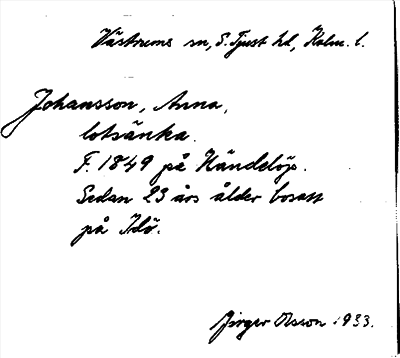 Västrums sn, S. Tjust hd, Kalm. l.
Johansson, Anna,
lotsänka.
F. 1849 på Händelöp.
Sedan 23 års ålder bosatt
på Idö.
Birger Olsson 1933.